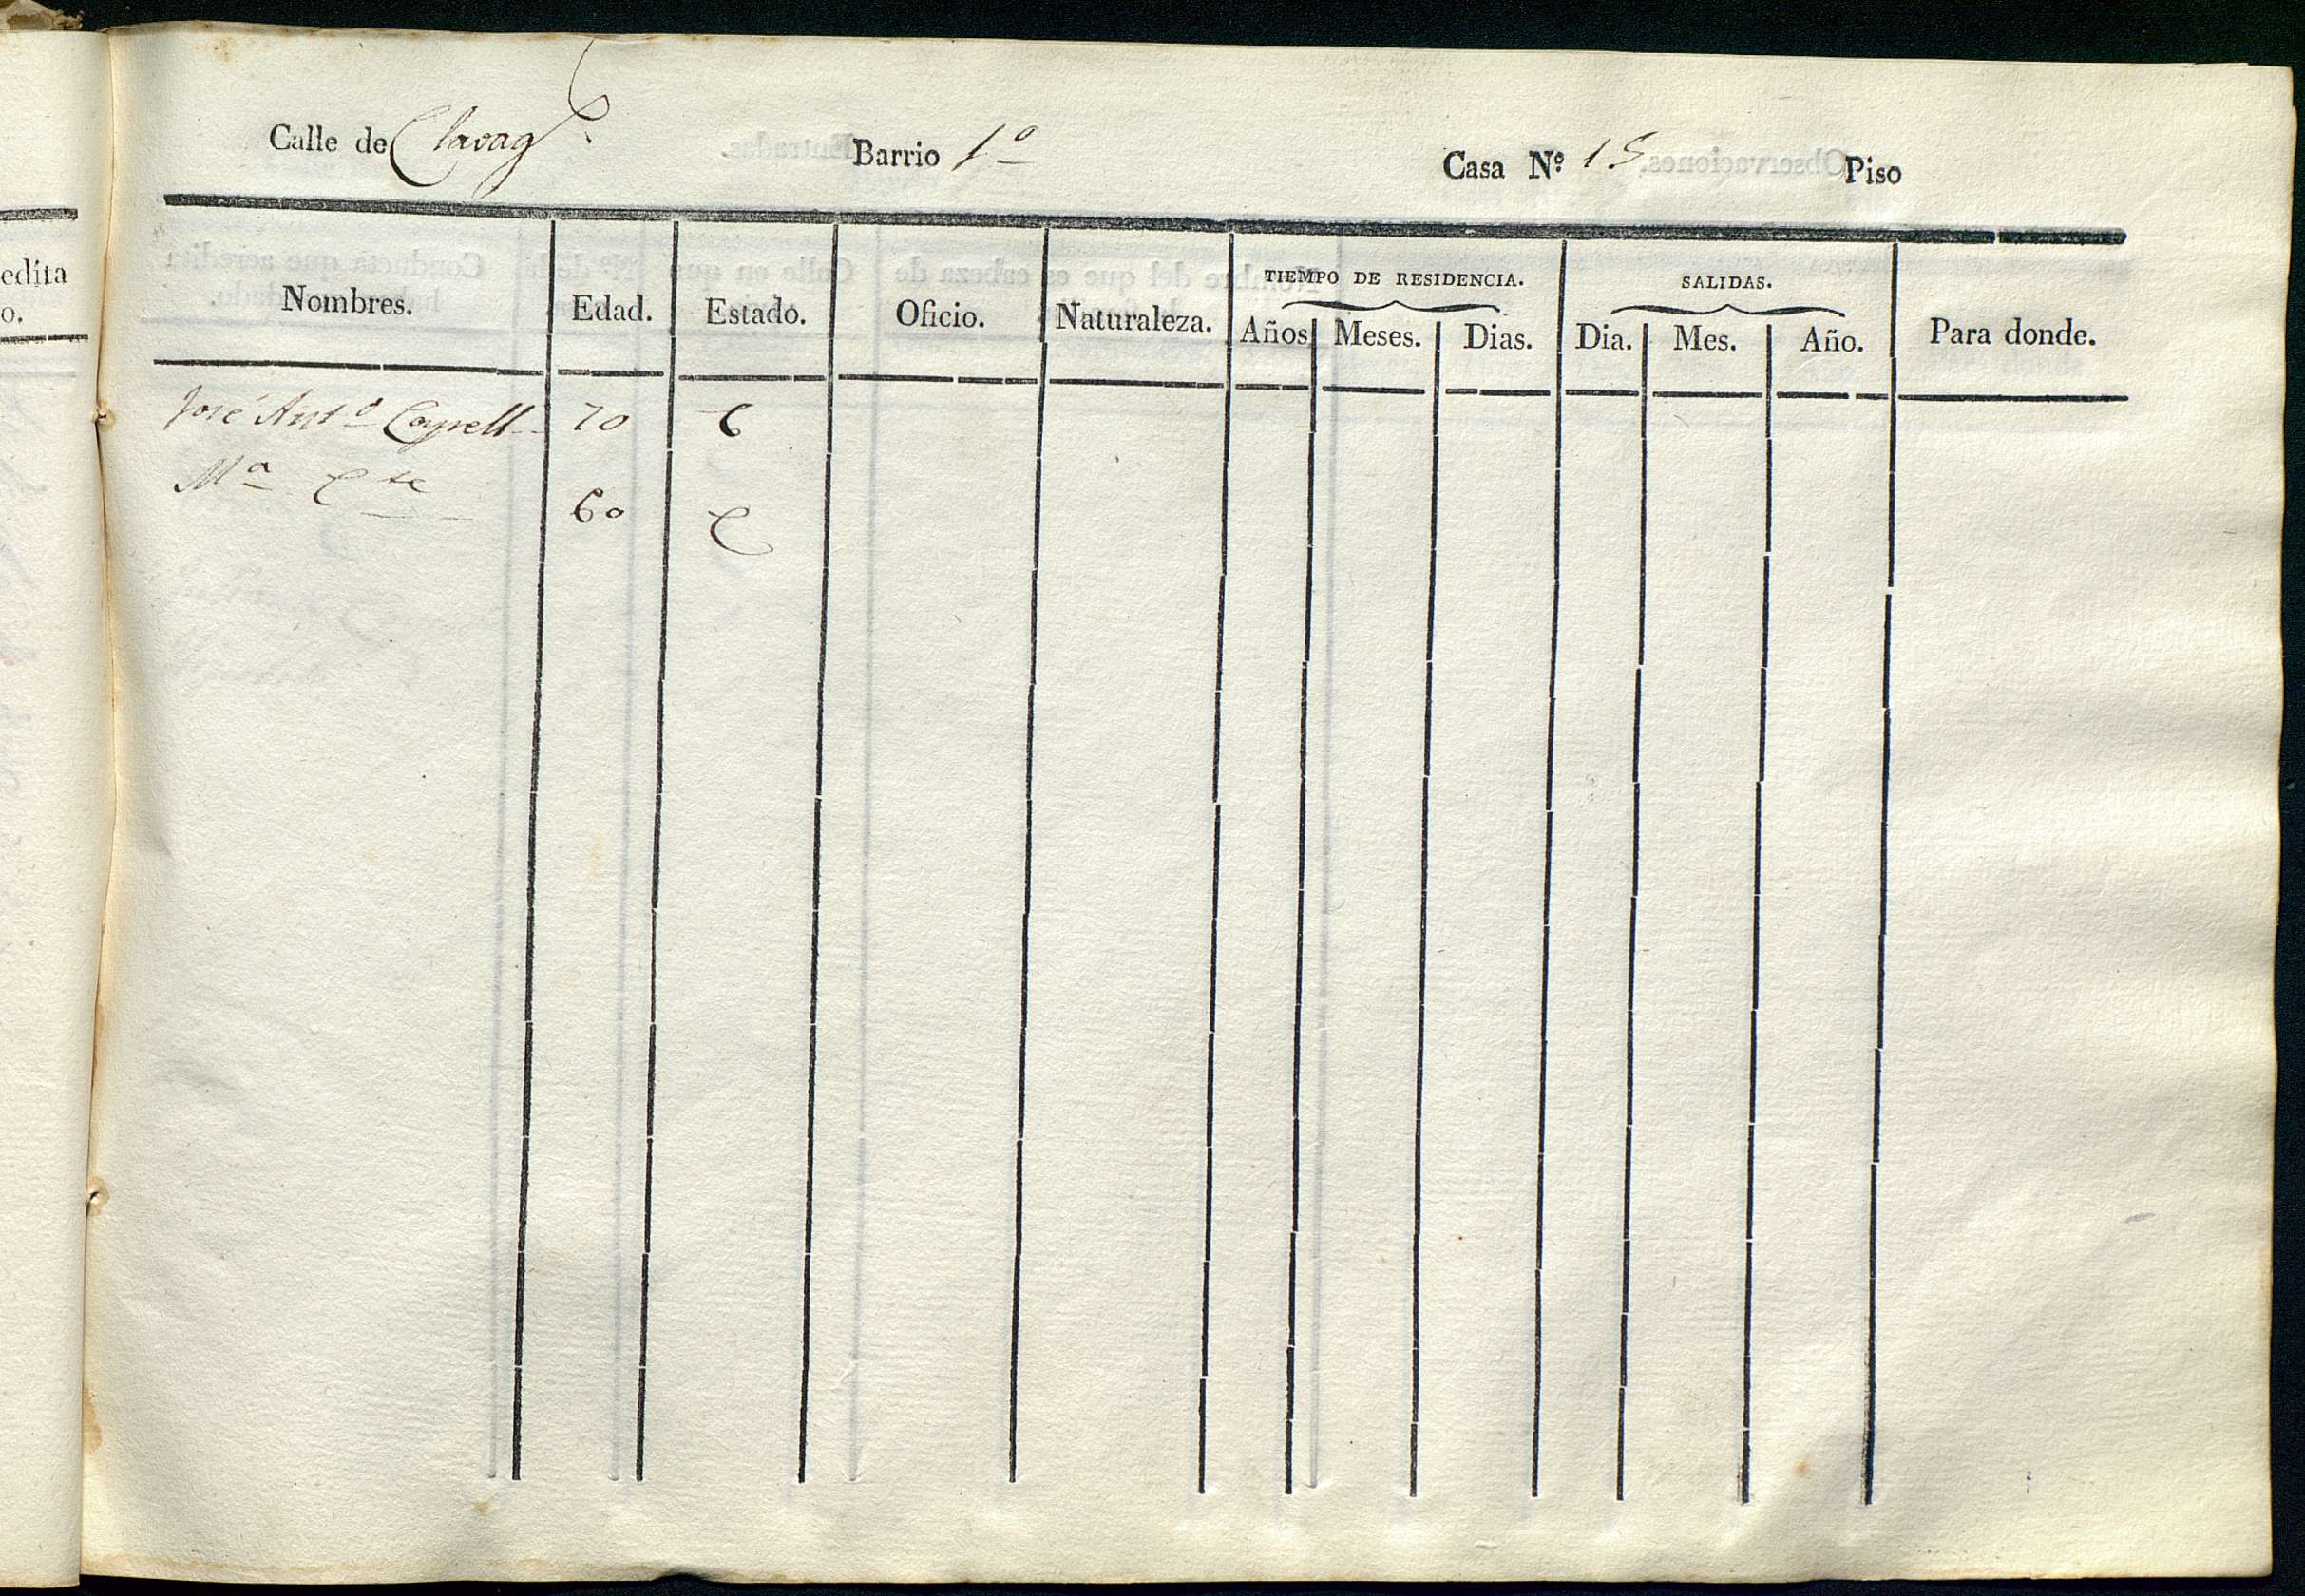 Calle de Clavag.ª Barrio 1º Casa Nº 15 Piso
edita
o.
Nombres. Edad. Estado. Oficio. Naturaleza. TIEMPO DE RESIDENCIA. SALIDAS. Para donde.
Años Meses. Dias. Dia. Mes. Año.
José Antº 70 C
Mª 60 C